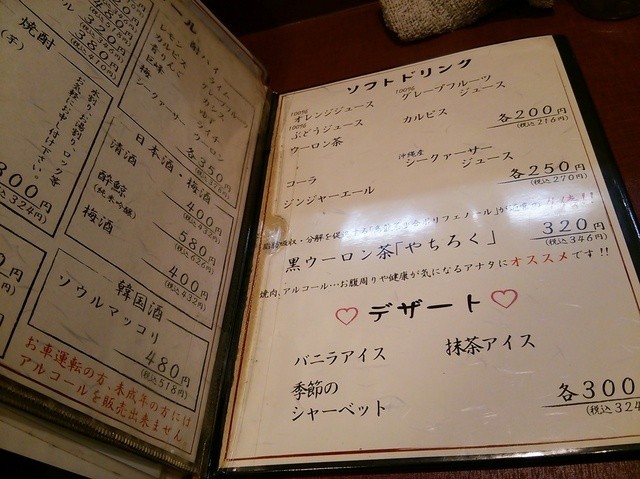 焼酎
(芋)
水割り・お湯割り・ロック等
お気軽にお申し付け下さい。
(税込324円)
酎ハイ
レモン
カルピス
青りんご
巨峰
梅
シークァーサー
グレープフルーツ
ウーロン
各350円
(税込378円)
日本酒・梅酒
清酒
400円
(税込432円)
酔鯨
(純米吟醸)
580円
(税込626円)
梅酒
400円
(税込432円)
韓国酒
ソウルマッコリ
480円
(税込518円)
お車運転の方、未成年の方には
アルコールを販売出来ません。
ソフトドリンク
100%
オレンジジュース
100%
グレープフルーツ
ジュース
100%
ぶどうジュース
カルピス
ウーロン茶
各200円
(税込216円)
沖縄産
シークァーサー
ジュース
コーラ
ジンジャーエール
各250円
(税込270円)
黒ウーロン茶「やちろく」
320円
(税込346円)
焼肉、アルコール…お腹周りや健康が気になるアナタにオススメです!!
♡ デザート ♡
バニラアイス
抹茶アイス
季節の
シャーベット
各300
(税込324